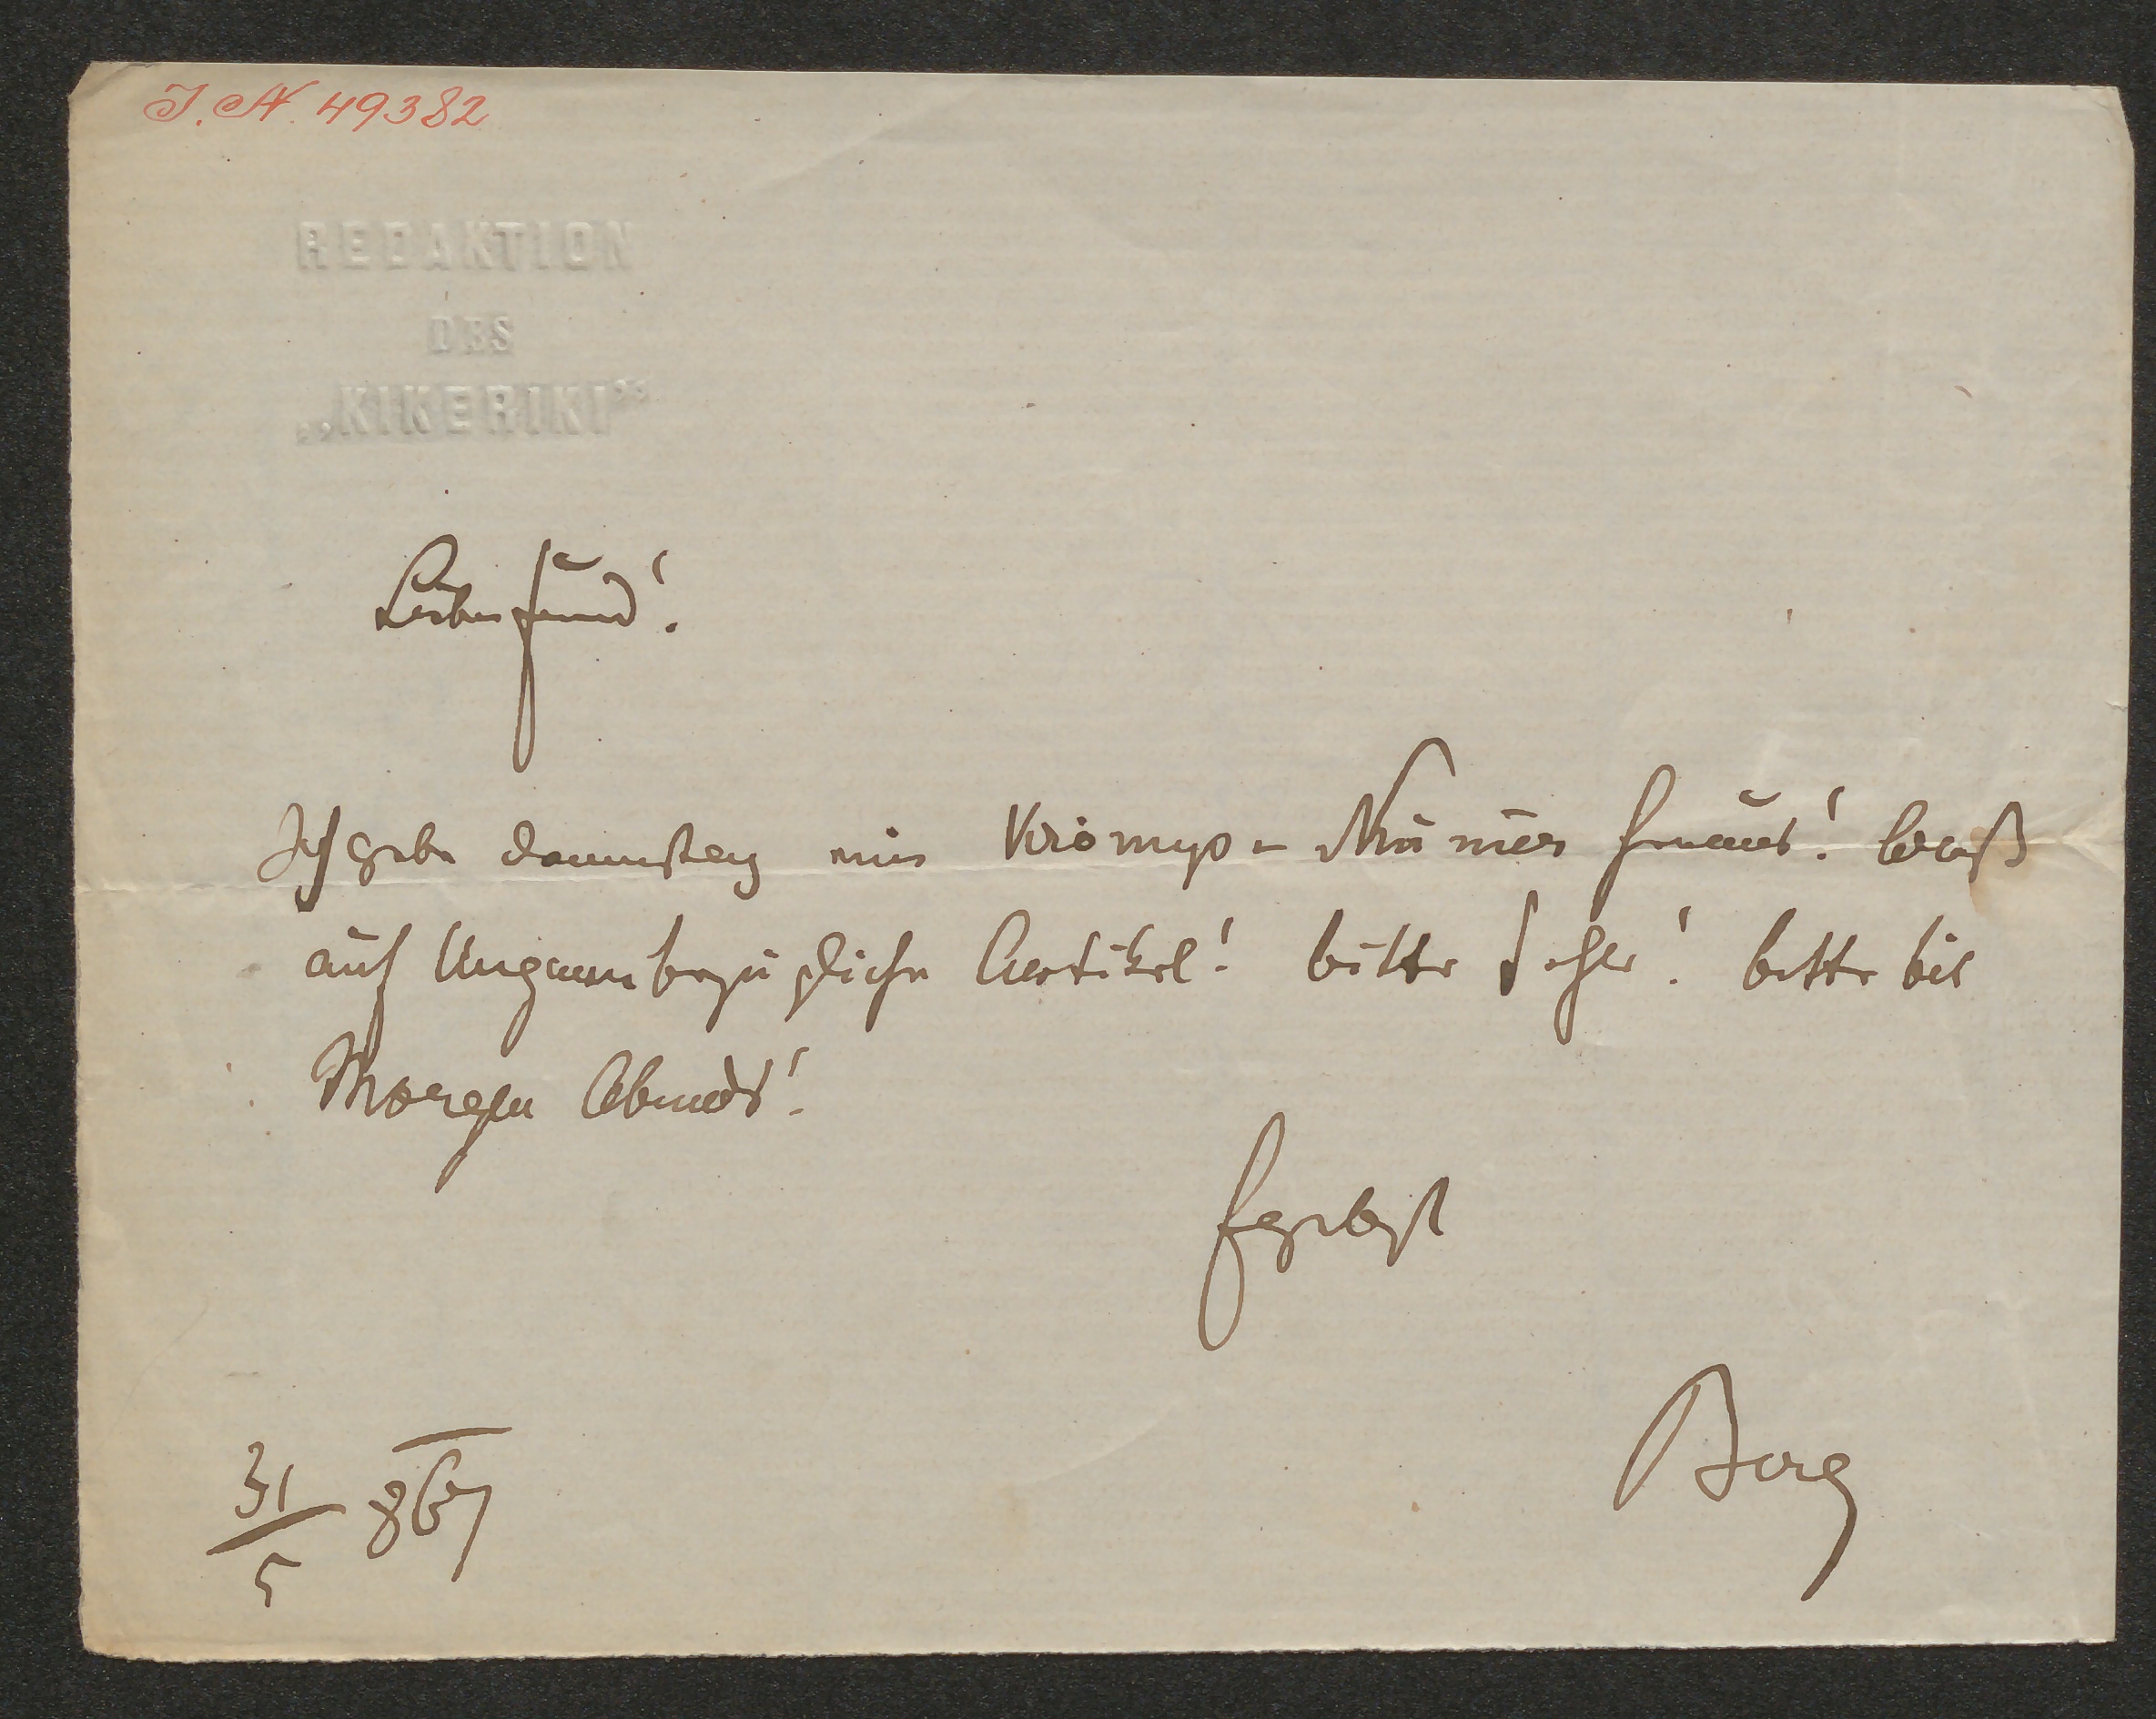 J. N. 49382
REDAKTION
DES
„KIKERIKI“
Lieber Freund!
Ich gebe Donnerstag eine Krönungs-Numer heraus! bloß
auf Ungarn bezügliche Artikel! bitte sehr! bitte bis
Morgen Abends!
Ergebenst
Berg
31/5 867